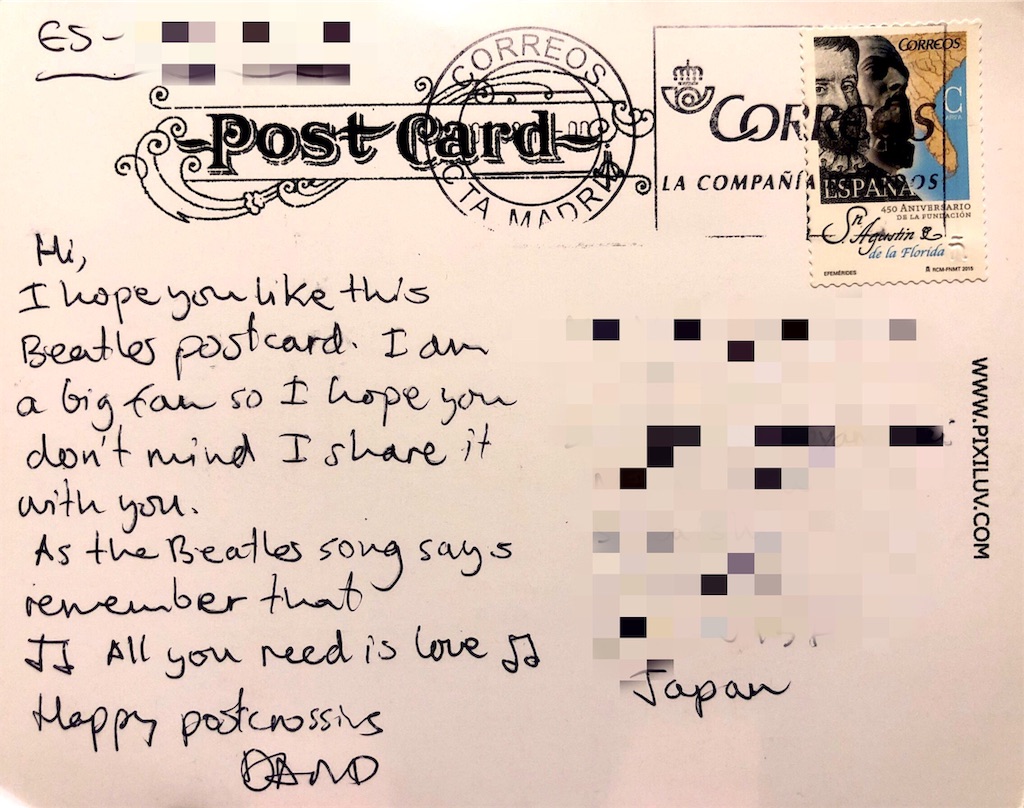 ES-
Post Card
CORREOS
CTA MADRID
CORREOS
LA COMPAÑÍA
CORREOS
C
ESPAÑA
450 ANIVERSARIO
DE LA FUNDACIÓN
Sn Agustín
de la Florida
EFEMÉRIDES
RCM-FNMT 2015
Hi,
I hope you like this
Beatles postcard. I am
a big fan so I hope you
don't mind I share it
with you.
As the Beatles song says
remember that
♫ All you need is love ♫
Happy postcrossing
Japan
WWW.PIXILUV.COM